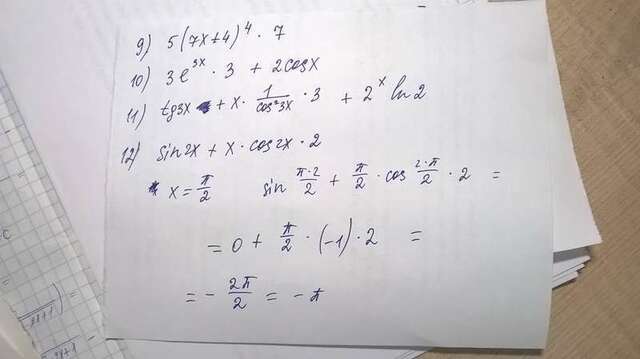 9) 5(7x+4)⁴ · 7
10) 3e³ˣ · 3 + 2cosx
11) tg3x + x · 1/cos²3x · 3 + 2ˣ ln2
12) sin2x + x · cos2x · 2
x = π/2 sin π·2/2 + π/2 · cos 2·π/2 · 2 =
= 0 + π/2 · (-1) · 2 =
= - 2π/2 = - π